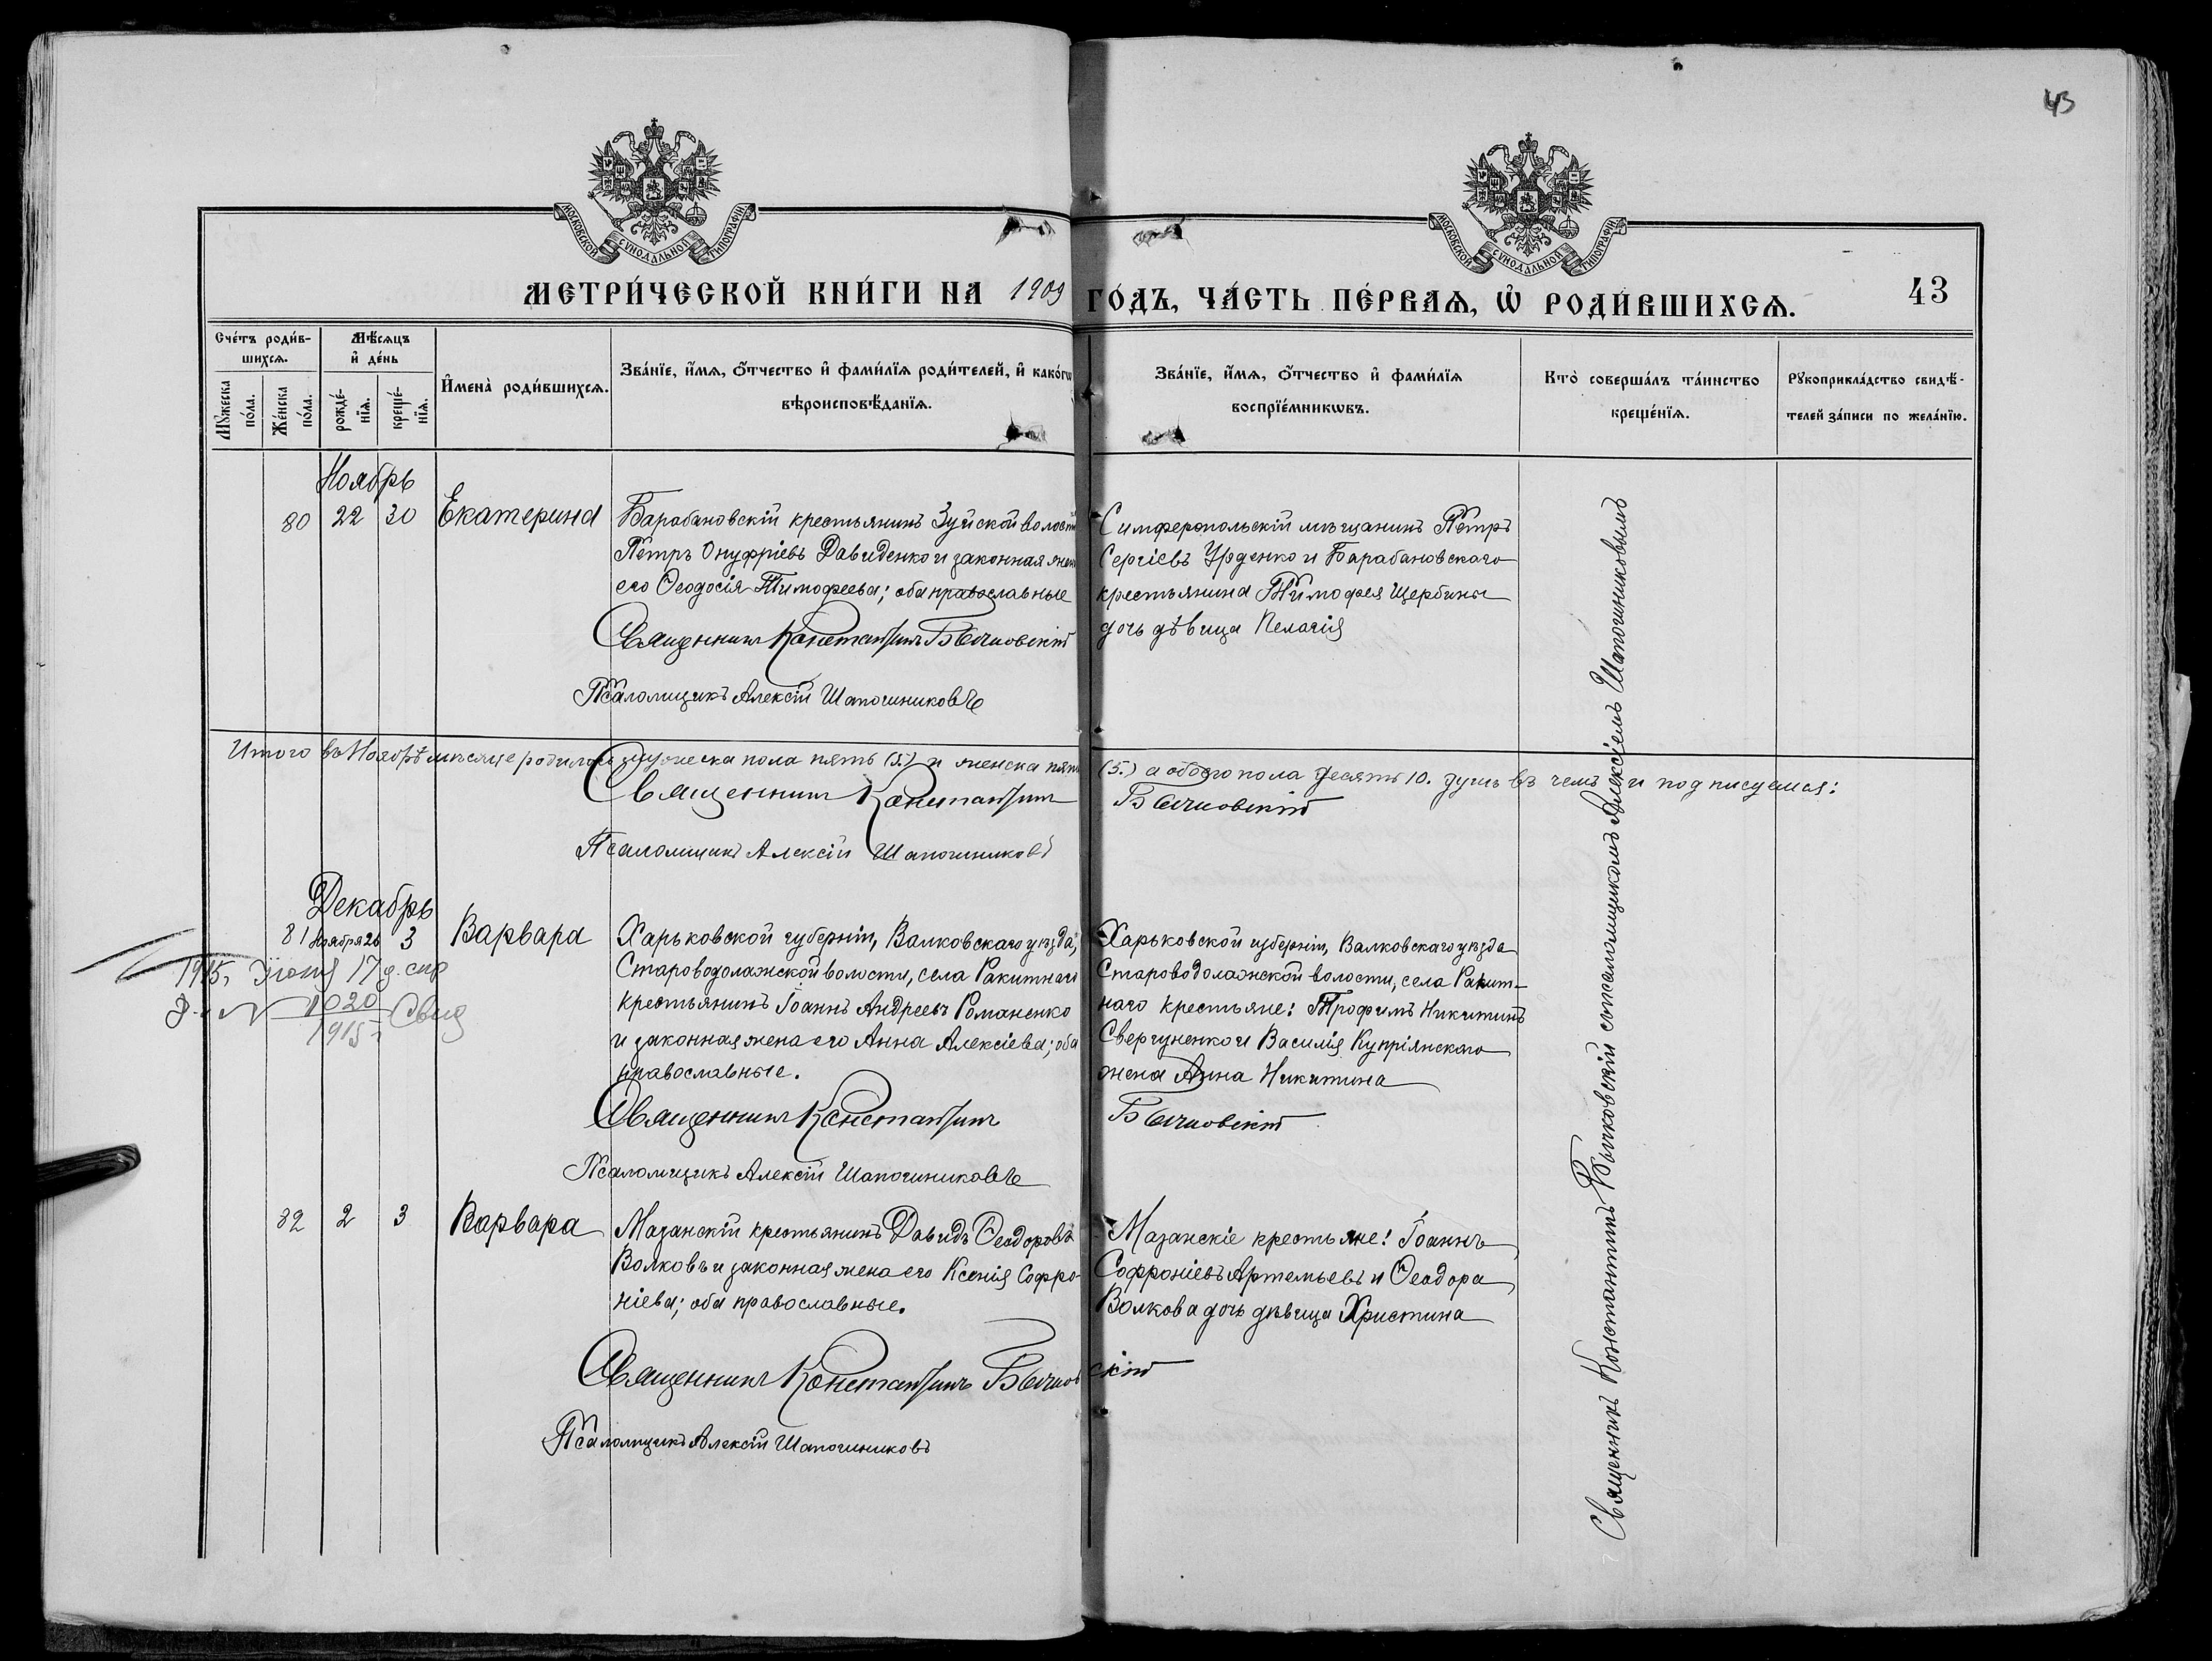 43
МОСКОВСКОЙ СУНОДАЛЬНОЙ ТИПОГРАФІИ
МОСКОВСКОЙ СУНОДАЛЬНОЙ ТИПОГРАФІИ
МЕТРИ́ЧЕСКОЙ КНИ́ГИ НА 1909 ГО́ДЪ, ЧА́СТЬ ПЕ́РВАѦ, Ѡ҆ РОДИ́ВШИХСѦ.
43
Сче́тъ роди́в-
шихсѧ.
Мѣ́сѧцъ
и҆ де́нь
Мꙋ́жеска
по́ла.
Же́нска
по́ла.
рожде́-
нїѧ.
креще́-
нїѧ.
И҆мена̀ роди́вшихсѧ.
Зва́нїе, и҆́мѧ, ѻ҆́тчество и҆ фами́лїѧ роди́телей, и҆ како́гѡ
вѣроисповѣ́данїѧ.
Зва́нїе, и҆́мѧ, ѻ҆́тчество и҆ фами́лїѧ
воспрїе́мникѡвъ.
Кто̀ соверша́лъ та́инство
креще́нїѧ.
Рꙋкоприкла́дство свидѣ́-
телей за́писи по жела́нїю.
Ноябрь
80 22 30 Екатерина
Барабановскій крестьянинъ Зуйской волости
Петръ Онуфріевъ Давиденко и законная жена
его Ѳеодосія Тимофеева; оба православные
Священникъ Константинъ Бычковскій
Псаломщикъ Алексій Шапошниковъ
Симферопольскій мѣщанинъ Петръ
Сергіевъ Уряденко и Барабановскаго
крестьянина Тимофея Щербины
дочь дѣвица Пелагія
Итого въ Ноябрѣ мѣсяце родилось мужеска пола пять (5.) и женска пять (5.) а обоего пола десять 10. душъ въ чемъ и подписуемся:
Священникъ Константинъ Бычковскій
Псаломщикъ Алексій Шапошниковъ
Декабрь
81 Ноября 26 3 Варвара
1915 г. Іюня 17 д.
1020
1915 г.
Харьковской губерніи, Валковскаго уѣзда,
Староводолажской волости, села Ракитнаго
крестьянинъ Іоаннъ Андреевъ Романенко
и законная жена его Анна Алексіева; оба
православные.
Священникъ Константинъ Бычковскій
Псаломщикъ Алексій Шапошниковъ
Харьковской губерніи, Валковскаго уѣзда
Староводолажской волости, села Ракит-
наго крестьяне: Трофимъ Никитинъ
Свергуненко и Василія Купріянскаго
жена Анна Никитина
82 2 3 Варвара
Мазанскій крестьянинъ Давидъ Ѳеодоровъ
Волковъ и законная жена его Ксенія Софро-
ніева; оба православные.
Священникъ Константинъ Бычковскій
Псаломщикъ Алексій Шапошниковъ
Мазанскіе крестьяне: Іоаннъ
Софроніевъ Артемьевъ и Ѳеодора
Волкова дочь дѣвица Христина
Священникъ Константинъ Бычковскій съ псаломщикомъ Алексіемъ Шапошниковымъ